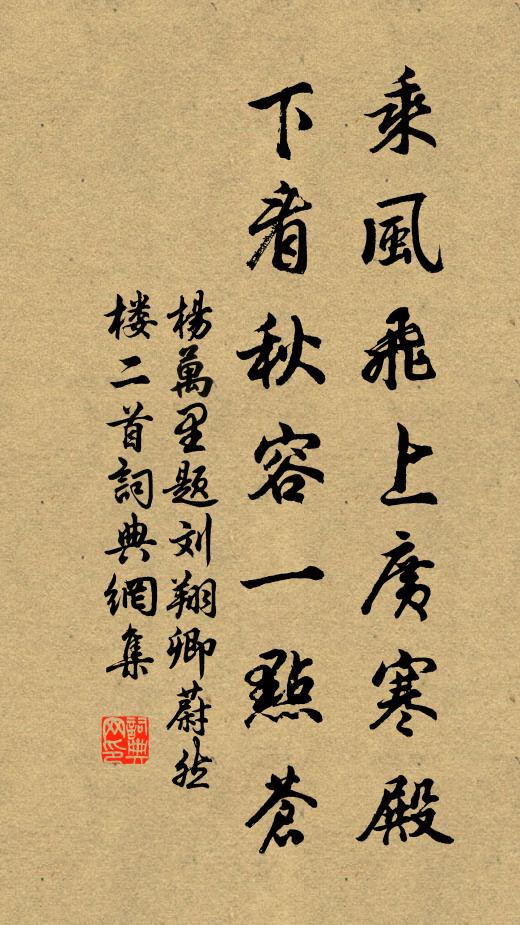 乘風飛上廣寒殿
下看秋容一點蒼
楊萬里題刘翔卿蔚然
楼二首詞典網集
詞典
网印